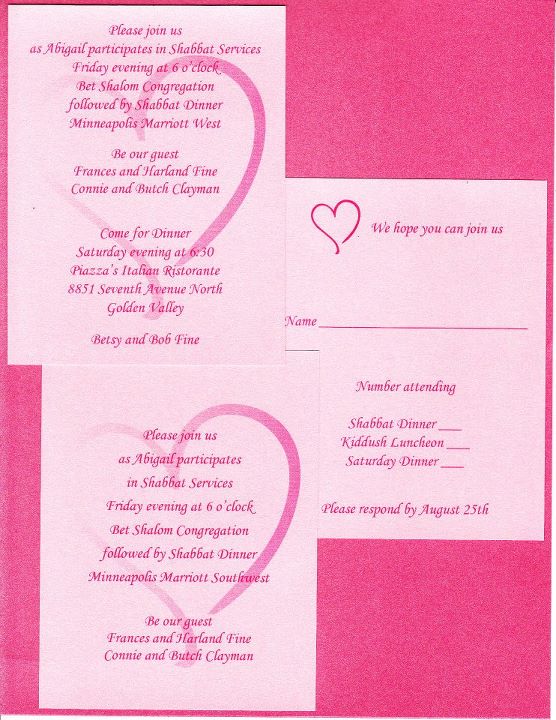 Please join us
as Abigail participates in Shabbat Services
Friday evening at 6 o'clock
Bet Shalom Congregation
followed by Shabbat Dinner
Minneapolis Marriott West
Be our guest
Frances and Harland Fine
Connie and Butch Clayman
Come for Dinner
Saturday evening at 6:30
Piazza's Italian Ristorante
8851 Seventh Avenue North
Golden Valley
Betsy and Bob Fine
We hope you can join us
Name
Number attending
Shabbat Dinner ___
Kiddush Luncheon ___
Saturday Dinner ___
Please respond by August 25th
Please join us
as Abigail participates
in Shabbat Services
Friday evening at 6 o'clock
Bet Shalom Congregation
followed by Shabbat Dinner
Minneapolis Marriott Southwest
Be our guest
Frances and Harland Fine
Connie and Butch Clayman